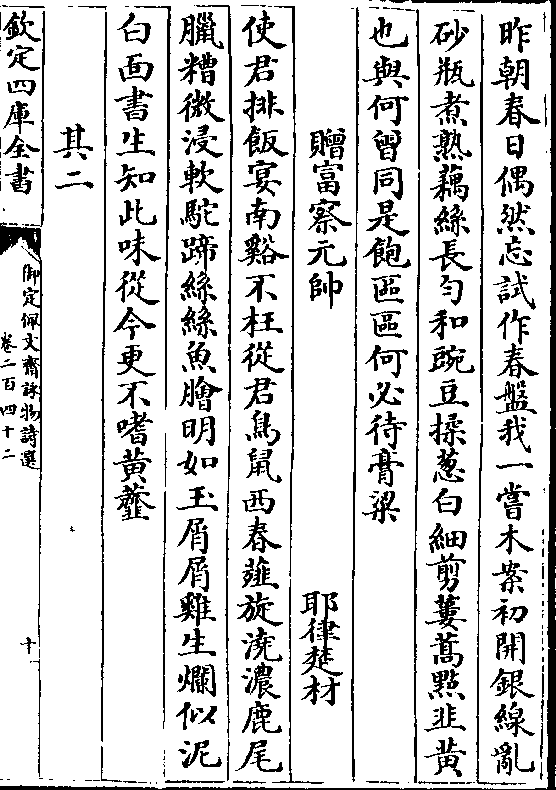 昨朝春日偶然忘試作春盤我一嘗木案初開銀線亂
砂瓶煮熟藕絲長勻和豌豆搡葱白細剪蔞蒿點韭黄
也與何曽同是飽區區何必待膏粱
贈富察元帥 耶律楚材
使君排飯宴南谿不枉從君鳥䑕西春薤旋澆濃鹿尾
臘糟微浸軟駝蹄絲絲魚膾明如玉屑屑雞生爛似泥
白面書生知此味從今更不嗜黄虀
其二
欽定四庫全書
御定佩文齋詠物詩選
卷二百四十二
十